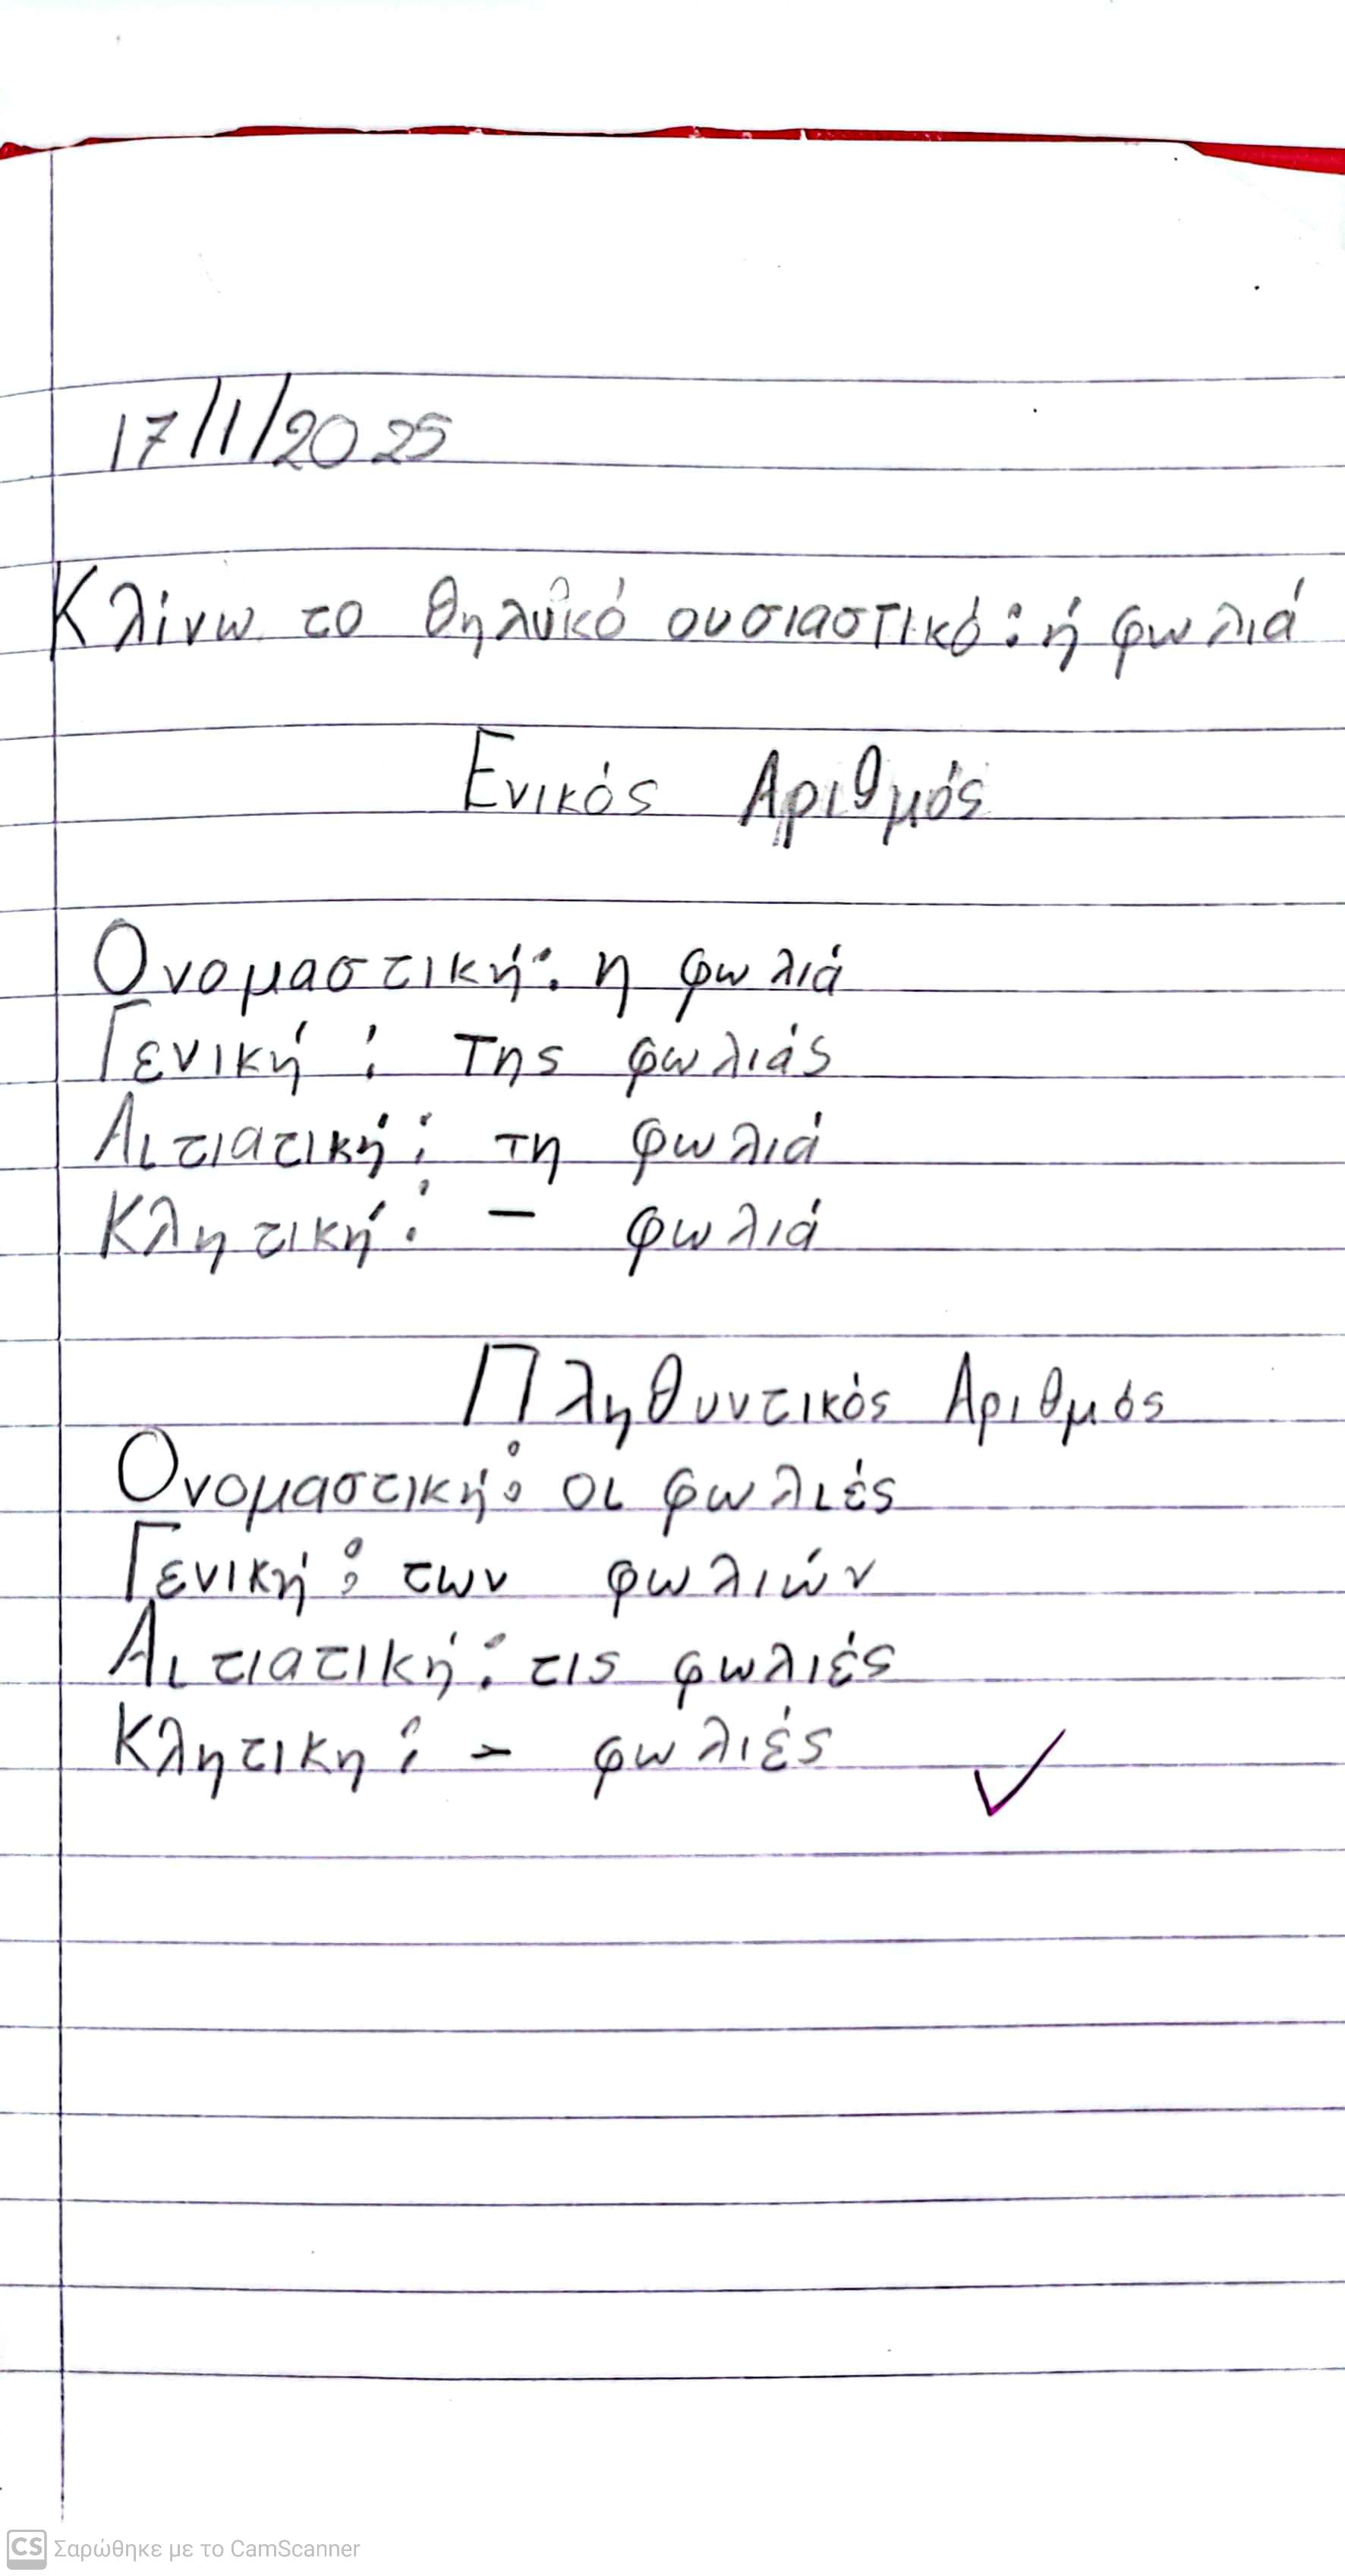 17/1/2025
Κλίνω το θηλυκό ουσιαστικό: ή φωλιά
Ενικός Αριθμός
Ονομαστική: η φωλιά
Γενική: της φωλιάς
Αιτιατική: τη φωλιά
Κλητική: - φωλιά
Πληθυντικός Αριθμός
Ονομαστική: οι φωλιές
Γενική: των φωλιών
Αιτιατική: τις φωλιές
Κλητικη: - φωλιές
CS Σαρώθηκε με το CamScanner